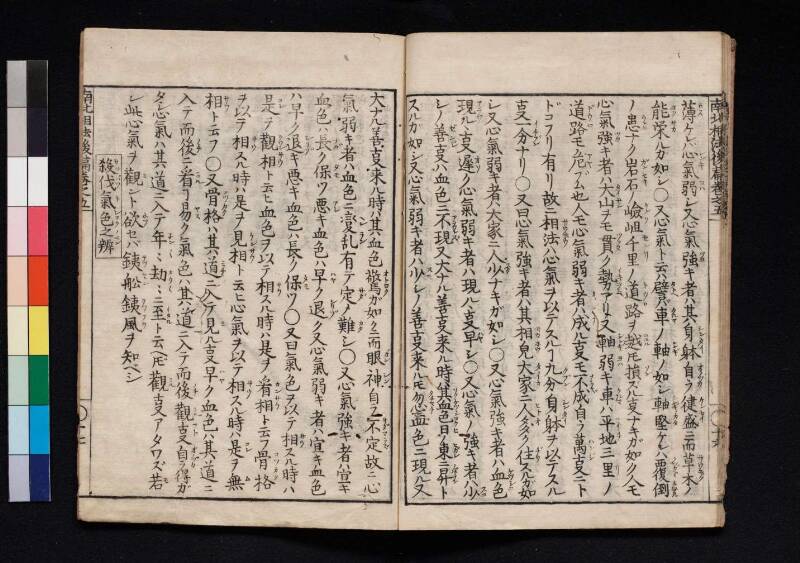 南北相法後篇巻之五
薄ケレバ心氣弱シ又心氣強キ者ハ其身躰自ラ健盛ニ而草木ノ
能榮ルガ如シ〇又心氣ト云ハ譬バ車ノ軸ノ如シ軸堅ケレバ覆倒
ノ患ナク岩石ノ嶮岨千里ノ道路ヲ越レ𪜈損ズル支ナキガ如ク人モ
心氣強キ者ハ大山ヲモ貫ク勢アリ又軸弱キ車ハ平地三里ノ
道路モ危ブム也人モ心氣弱キ者ハ成ル支モ不成自ラ萬支ニト
ドコフリ有リ故ニ相法ハ心氣ヲ以テスル丁九分身躰ヲ以テスル
支一分ナリ〇又曰心氣強キ者ハ其相見大家ニ人多ク住スルガ如
シ又心氣弱キ者ハ大家ニ人少ナキガ如シ〇又心氣強キ者ハ血色
現ル支遅ク心氣弱キ者ハ現ル支早シ〇又心氣ノ強キ者ハ小
シノ善支ハ血色ニ不現又大ナル善支來ル時ハ其血色日ノ東ニ昇ト
スルガ如シ又心氣弱キ者ハ少シノ善支來ルモ忽血色ニ現ル又
大ナル善支來ル時ハ其血色驚ガ如ク而眼神自ラ不定故ニ心
氣弱キ者ハ血色ニ変乱有テ定メ難シ〇又心氣強キ者ハ宜キ
血色ハ長ク保ツ悪キ血色ハ早ク退ク又心氣弱キ者ハ宜キ血色
ハ早ク退キ悪キ血色ハ長ク保ツ〇又曰氣色ヲ以テ相スル時ハ
是ヲ觀相ト云ヒ血色ヲ以テ相スル時ハ是ヲ看相ト云フ骨格
ヲ以テ相スル時ハ是ヲ見相ト云ヒ心氣ヲ以テ相スル時ハ是ヲ無
相ト云フ〇又骨格ハ其道ニ入テ見ル支早ク血色ハ其道ニ
入テ而後ニ看リ易ク氣色ハ其道ニ入テ而後觀支自ラ得ガ
タシ心氣ハ其道ニ入テ年〻劫〻ニ至ト云𪜈觀支アタワズ若
シ此心氣ヲ觀ント欲セバ銕舩銕風ヲ知ベシ
殺伐氣色之辨
南北相法後篇巻之五